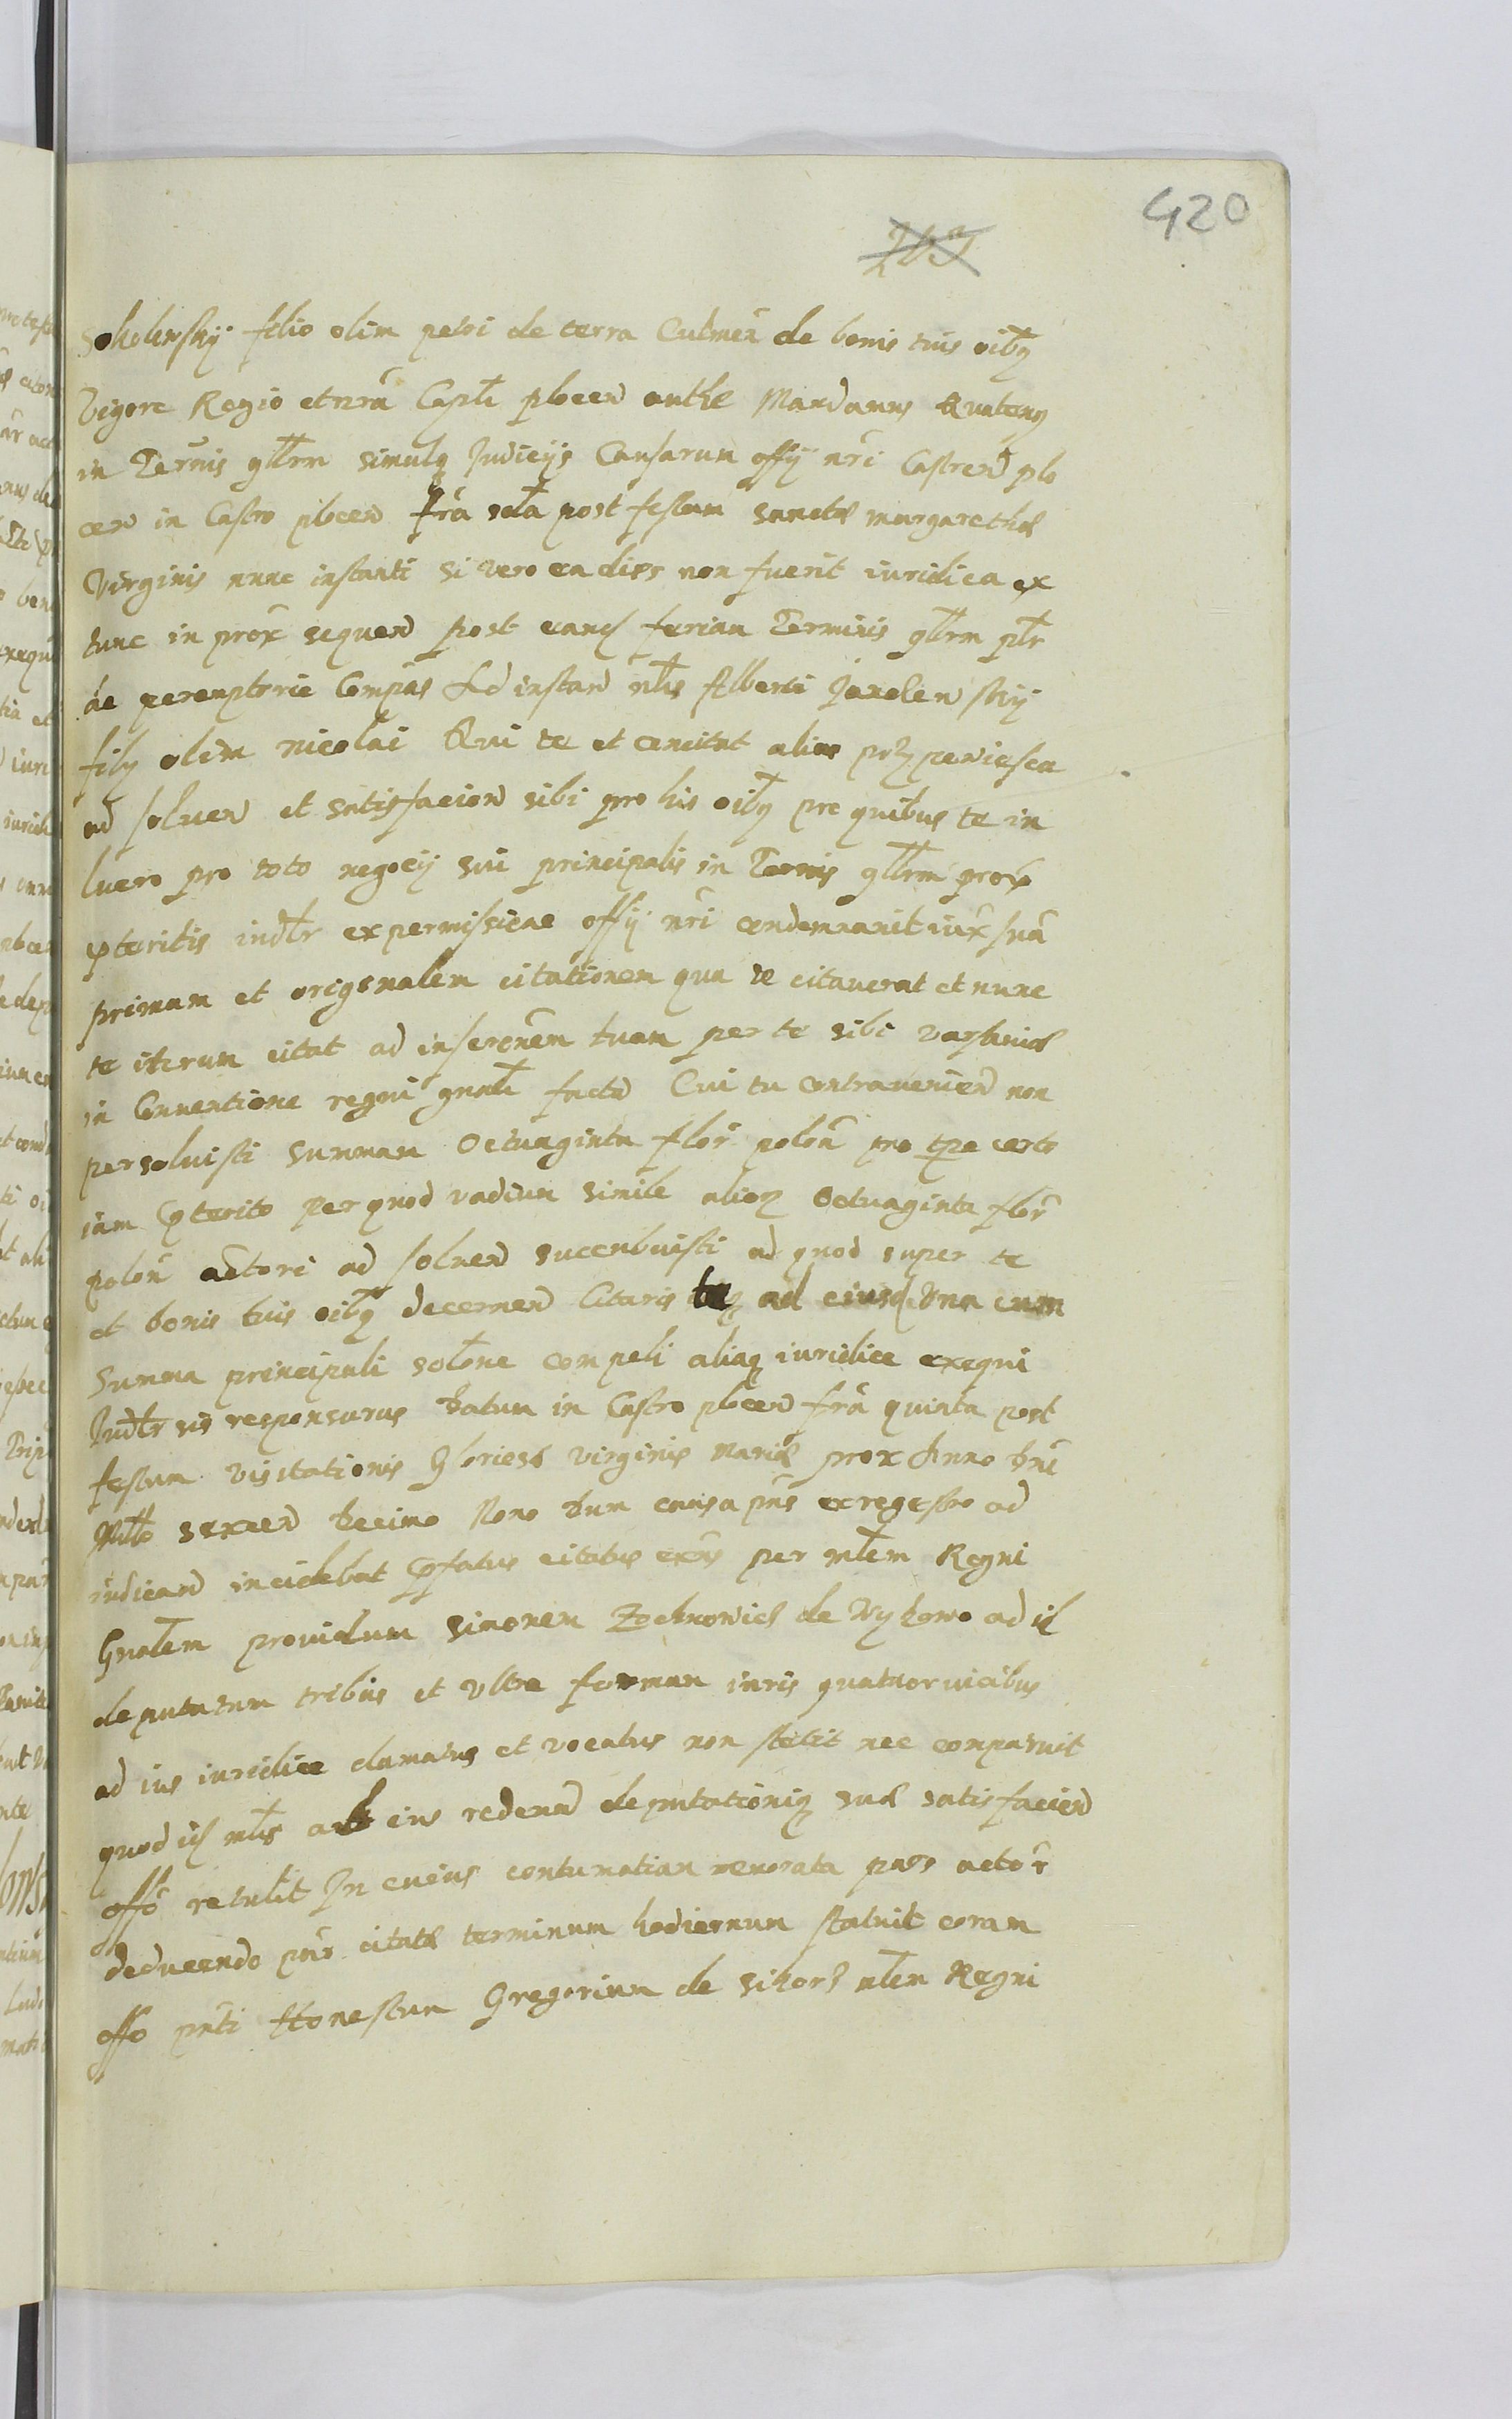 420
Sokolenskÿ filio olim petri de terra Culmen̄ de bonis tuis oibꝫ
Vigore Regio et nr̄a Caplī plocen authe Mandamus Quatenꝫ
in Ter̄nis qllrm simulqꝫ Judicijs Causarum offÿ nr̄i Castren plo
cen in Castro plocen fr̄a scda post festum sanctæ margarethæ
Virginis nunc instanti si vero ea dies non fuerit iuridica ex
tunc in prox̄ sequen post eand feriam Terminis qllrm plr̄
de peremptorie Compās Ad instan nlīs Alberti Jaxolen skÿ
filÿ olim nicolai Qui te et
ad soluen et satisfacien sibi pro his oibꝫ pre quibus te in
lucro pro toto negocÿ sui principalis in Ter̄nis qllrm prox̄
p̄teritis iudlr ex permissione offÿ nr̄i condemnavit iux̄ suā
primam et originalem citationem qua te citaverat et nunc
te iterum citat ad inscrōnem tuam per te sibi varsaviæ
in Conventione regni gnalī factā Cui tu contravenien non
persolvisti summam Octuaginta flor̄ polon̄ pro tpe certo
iam p̄terito per quod vadium simile alioꝝ Octuaginta flor̄
polon̄ actori ad soluen succubuisti ad quod super te
et bonis tuis oibꝫ decernen Citaris ad eiusd Una cum
Summa principali solōne compeli aliaqꝫ iuridice exequi
Judlr sis responsurus Datum in Castro plocen fr̄a quinta post
festum visitationis Gloriosæ virginis Mariæ prox Anno Dnī
Mllo sexcen Decimo Nono Dum causa pn̄s ex regestro ad
iudican incidebat p̄fatus citatus per mlem Regni
Gnalem providum Simonem Zochnowicz de Wykowo ad id
deputatum tribus et Ultra formam iuris quatuor vicibus
ad ius iuridice clamatus et vocatus non stetit nec comparuit
quod id mlīs ab eius deputationiqꝫ suæ satisfacien
offō retulit In cuius contumatiam memorata pars actor̄
deducendo pn̄s citatæ terminum hodiernum statuit coram
offo pn̄ti Honestum Gregorium de Sikorz mlem Regni